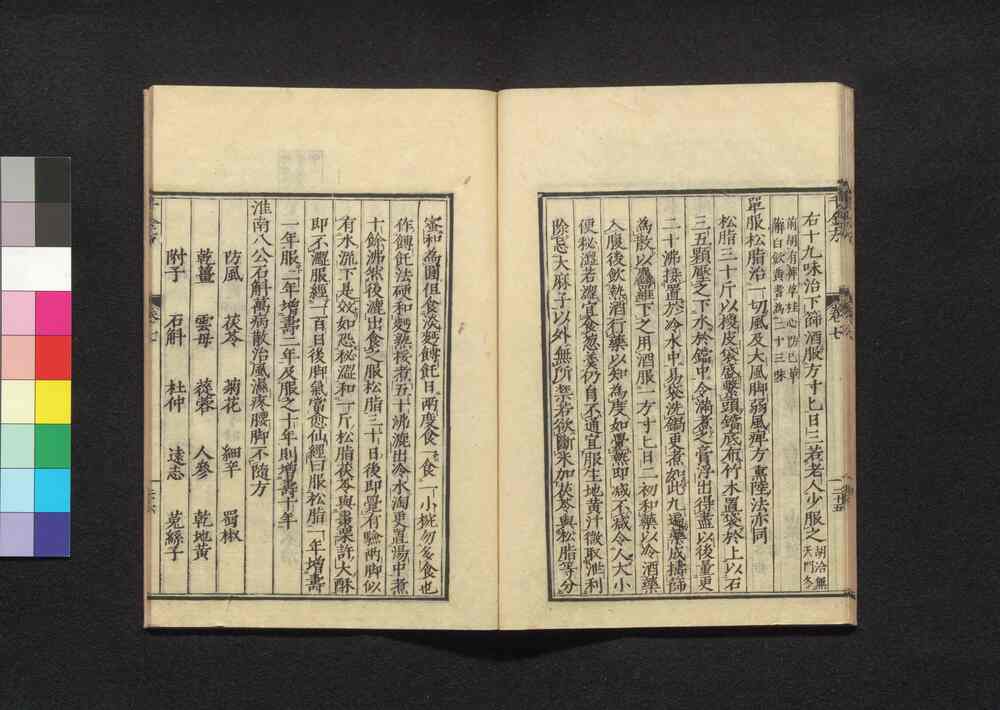 右十九味治下篩酒服方寸匕日三若老人少服之胡洽無天門冬
前胡有
解白飲
單服松脂治一切風及大風脚弱風痺方薰陸法亦同
松脂三十斤以椶皮袋盛繫頭鐺底布竹木置袋於上以石
三五顆壓之下水於鐺中令滿煮之膏浮出得盡以後量更
二十沸接置於冷水中易袋洗鍋更煮如此九遍藥成擣篩
為散以麤羅下之用酒服一方寸匕日二初和藥以冷酒藥
入腹後飲熱酒行藥以知為度如覺熱即減不減令人大小
便秘澀若澀宜食葱羮仍自不通宜服生地黄汁微取泄利
除忌大麻子以外無所禁若欲斷米加茯苓與松脂等分
蜜和為圓但食淡麵餺飥日兩度食一食一小椀勿多食也
作餺飥法硬和麵熟挼煮五十沸漉出冷水淘更置湯中煮
十餘沸然後漉出食之服松脂三十日後即覺有驗兩脚似
有水流下是效如恐秘澀和一斤松脂茯苓與棗栗許大酥
即不澀服經一百日後脚氣當愈仙經曰服松脂一年增壽
一年服二年增壽二年及服之十年則增壽十年
淮南八公石斛萬病散治風濕疼腰脚不隨方
防風 茯苓 菊花 細辛 蜀椒
乾薑 雲母 蓯蓉 人參 乾地黄
附子 石斛 杜仲 遠志 菟絲子